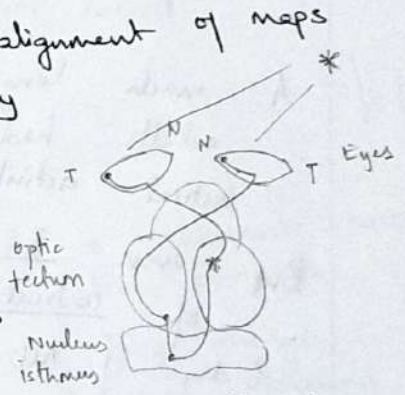 alignment of maps
y
*
N N
T T Eyes
optic
tectum
*
Nucleus
isthmus